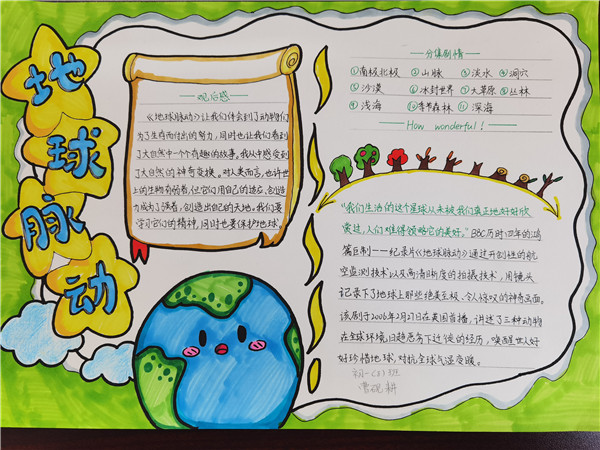 地球脉动
——观后感——
《地球脉动》让我们体会到了动物们
为了生存而付出的努力,同时也让我们看到
了大自然中一个个有趣的故事。我从中感受到
了大自然的神奇变换。对人类而言,也许世
上的生物有弱者,但它们用自己的速度、创造
力成为了强者,创造出自己的天地。我们要
学习它们的精神,同时也要保护地球。
——分集剧情——
①南极北极 ②山脉 ③淡水 ④洞穴
⑤沙漠 ⑥冰封世界 ⑦大草原 ⑧丛林
⑨浅海 ⑩季节森林 ⑪深海
——How wonderful!——
“我们生活的这个星球从未被我们真正地好好欣
赏过。人们难得领略它的美好。”BBC历时四年的鸿
篇巨制——纪录片《地球脉动》通过开创性的航
空监测技术以及高清晰度的拍摄技术,用镜头
记录下了地球上那些绝美至极、令人惊叹的神奇画面。
该剧于2006年2月27日在英国首播,讲述了三种动物
在全球环境日趋恶劣下迁徙的经历,唤醒世人好
好珍惜地球,对抗全球气温变暖。
初一(1)班
曹砚耕